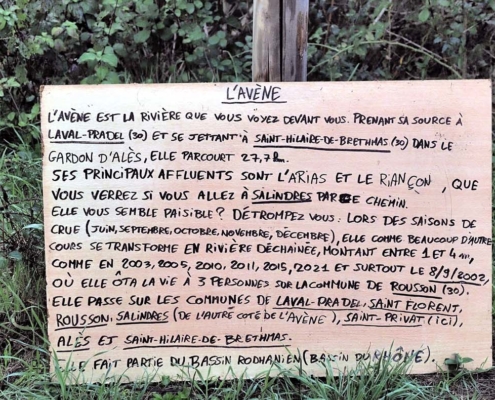 L'AVÈNE
L'AVÈNE EST LA RIVIÈRE QUE VOUS VOYEZ DEVANT VOUS. PRENANT SA SOURCE À
LAVAL-PRADEL (30) ET SE JETTANT À SAINT-HILAIRE-DE-BRETHMAS (30) DANS LE
GARDON D'ALÈS, ELLE PARCOURT 27,7 km.
SES PRINCIPAUX AFFLUENTS SONT L'ARIAS ET LE RIANÇON, QUE
VOUS VERREZ SI VOUS ALLEZ À SALINDRES PAR CE CHEMIN.
ELLE VOUS SEMBLE PAISIBLE? DÉTROMPEZ VOUS: LORS DES SAISONS DE
CRUE (JUIN, SEPTEMBRE, OCTOBRE, NOVEMBRE, DÉCEMBRE), ELLE COMME BEAUCOUP D'AUTRE
COURS SE TRANSFORME EN RIVIÈRE DÉCHAINÉE, MONTANT ENTRE 1 ET 4 m,
COMME EN 2003, 2005, 2010, 2011, 2015, 2021 ET SURTOUT LE 8/9/2002,
OÙ ELLE ÔTA LA VIE À 3 PERSONNES SUR LA COMMUNE DE ROUSSON (30).
ELLE PASSE SUR LES COMMUNES DE LAVAL-PRADEL, SAINT FLORENT,
ROUSSON, SALINDRES (DE L'AUTRE COTÉ DE L'AVÈNE), SAINT-PRIVAT (ICI),
ALÈS ET SAINT-HILAIRE-DE-BRETHMAS.
ELLE FAIT PARTIE DU BASSIN RODHANIEN (BASSIN DU RHÔNE).